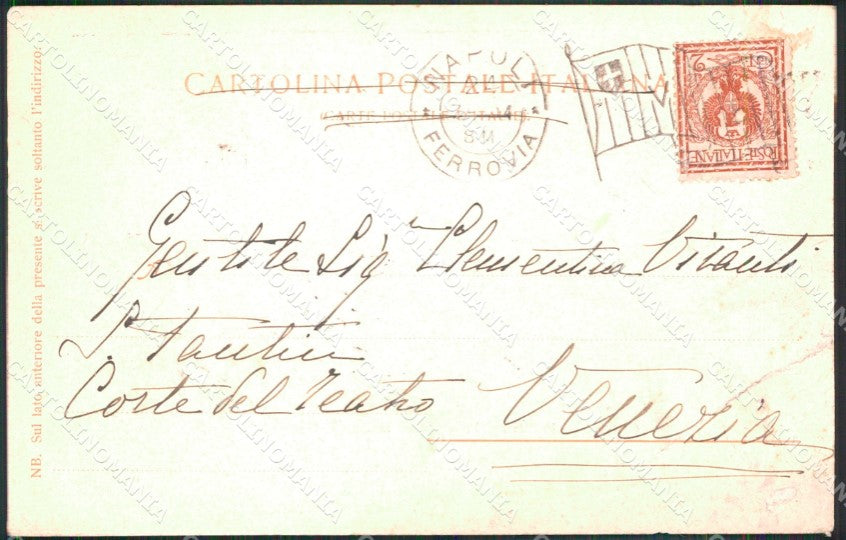 CARTOLINA POSTALE ITALIANA
CARTE POSTALE ITALIENNE
NAPOLI
FERROVIA
POSTE·ITALIANE
2
Gentile Sigra Clementina Vivanti
S. Fantin
Corte del Teatro
Venezia
NB. Sul lato anteriore della presente si scrive soltanto l'indirizzo.
CARTOLINOMANIA